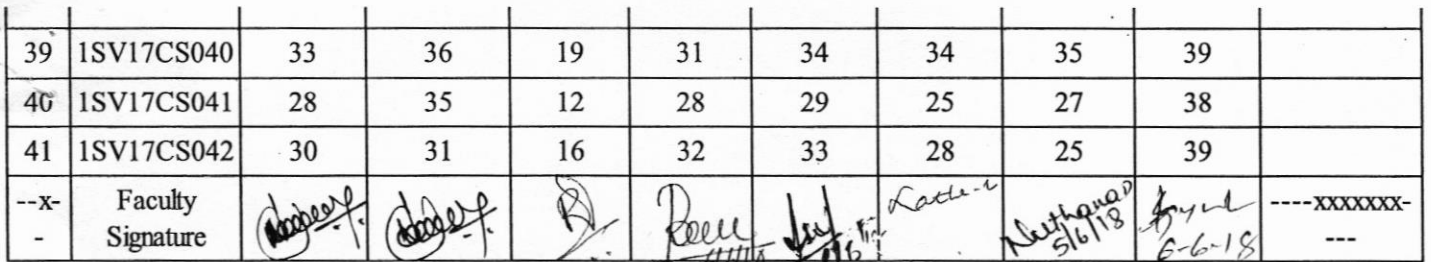 39 1SV17CS040 33 36 19 31 34 34 35 39
40 1SV17CS041 28 35 12 28 29 25 27 38
41 1SV17CS042 30 31 16 32 33 28 25 39
--x-- Faculty Signature 5/6/18 6-6-18 ----xxxxxxx----